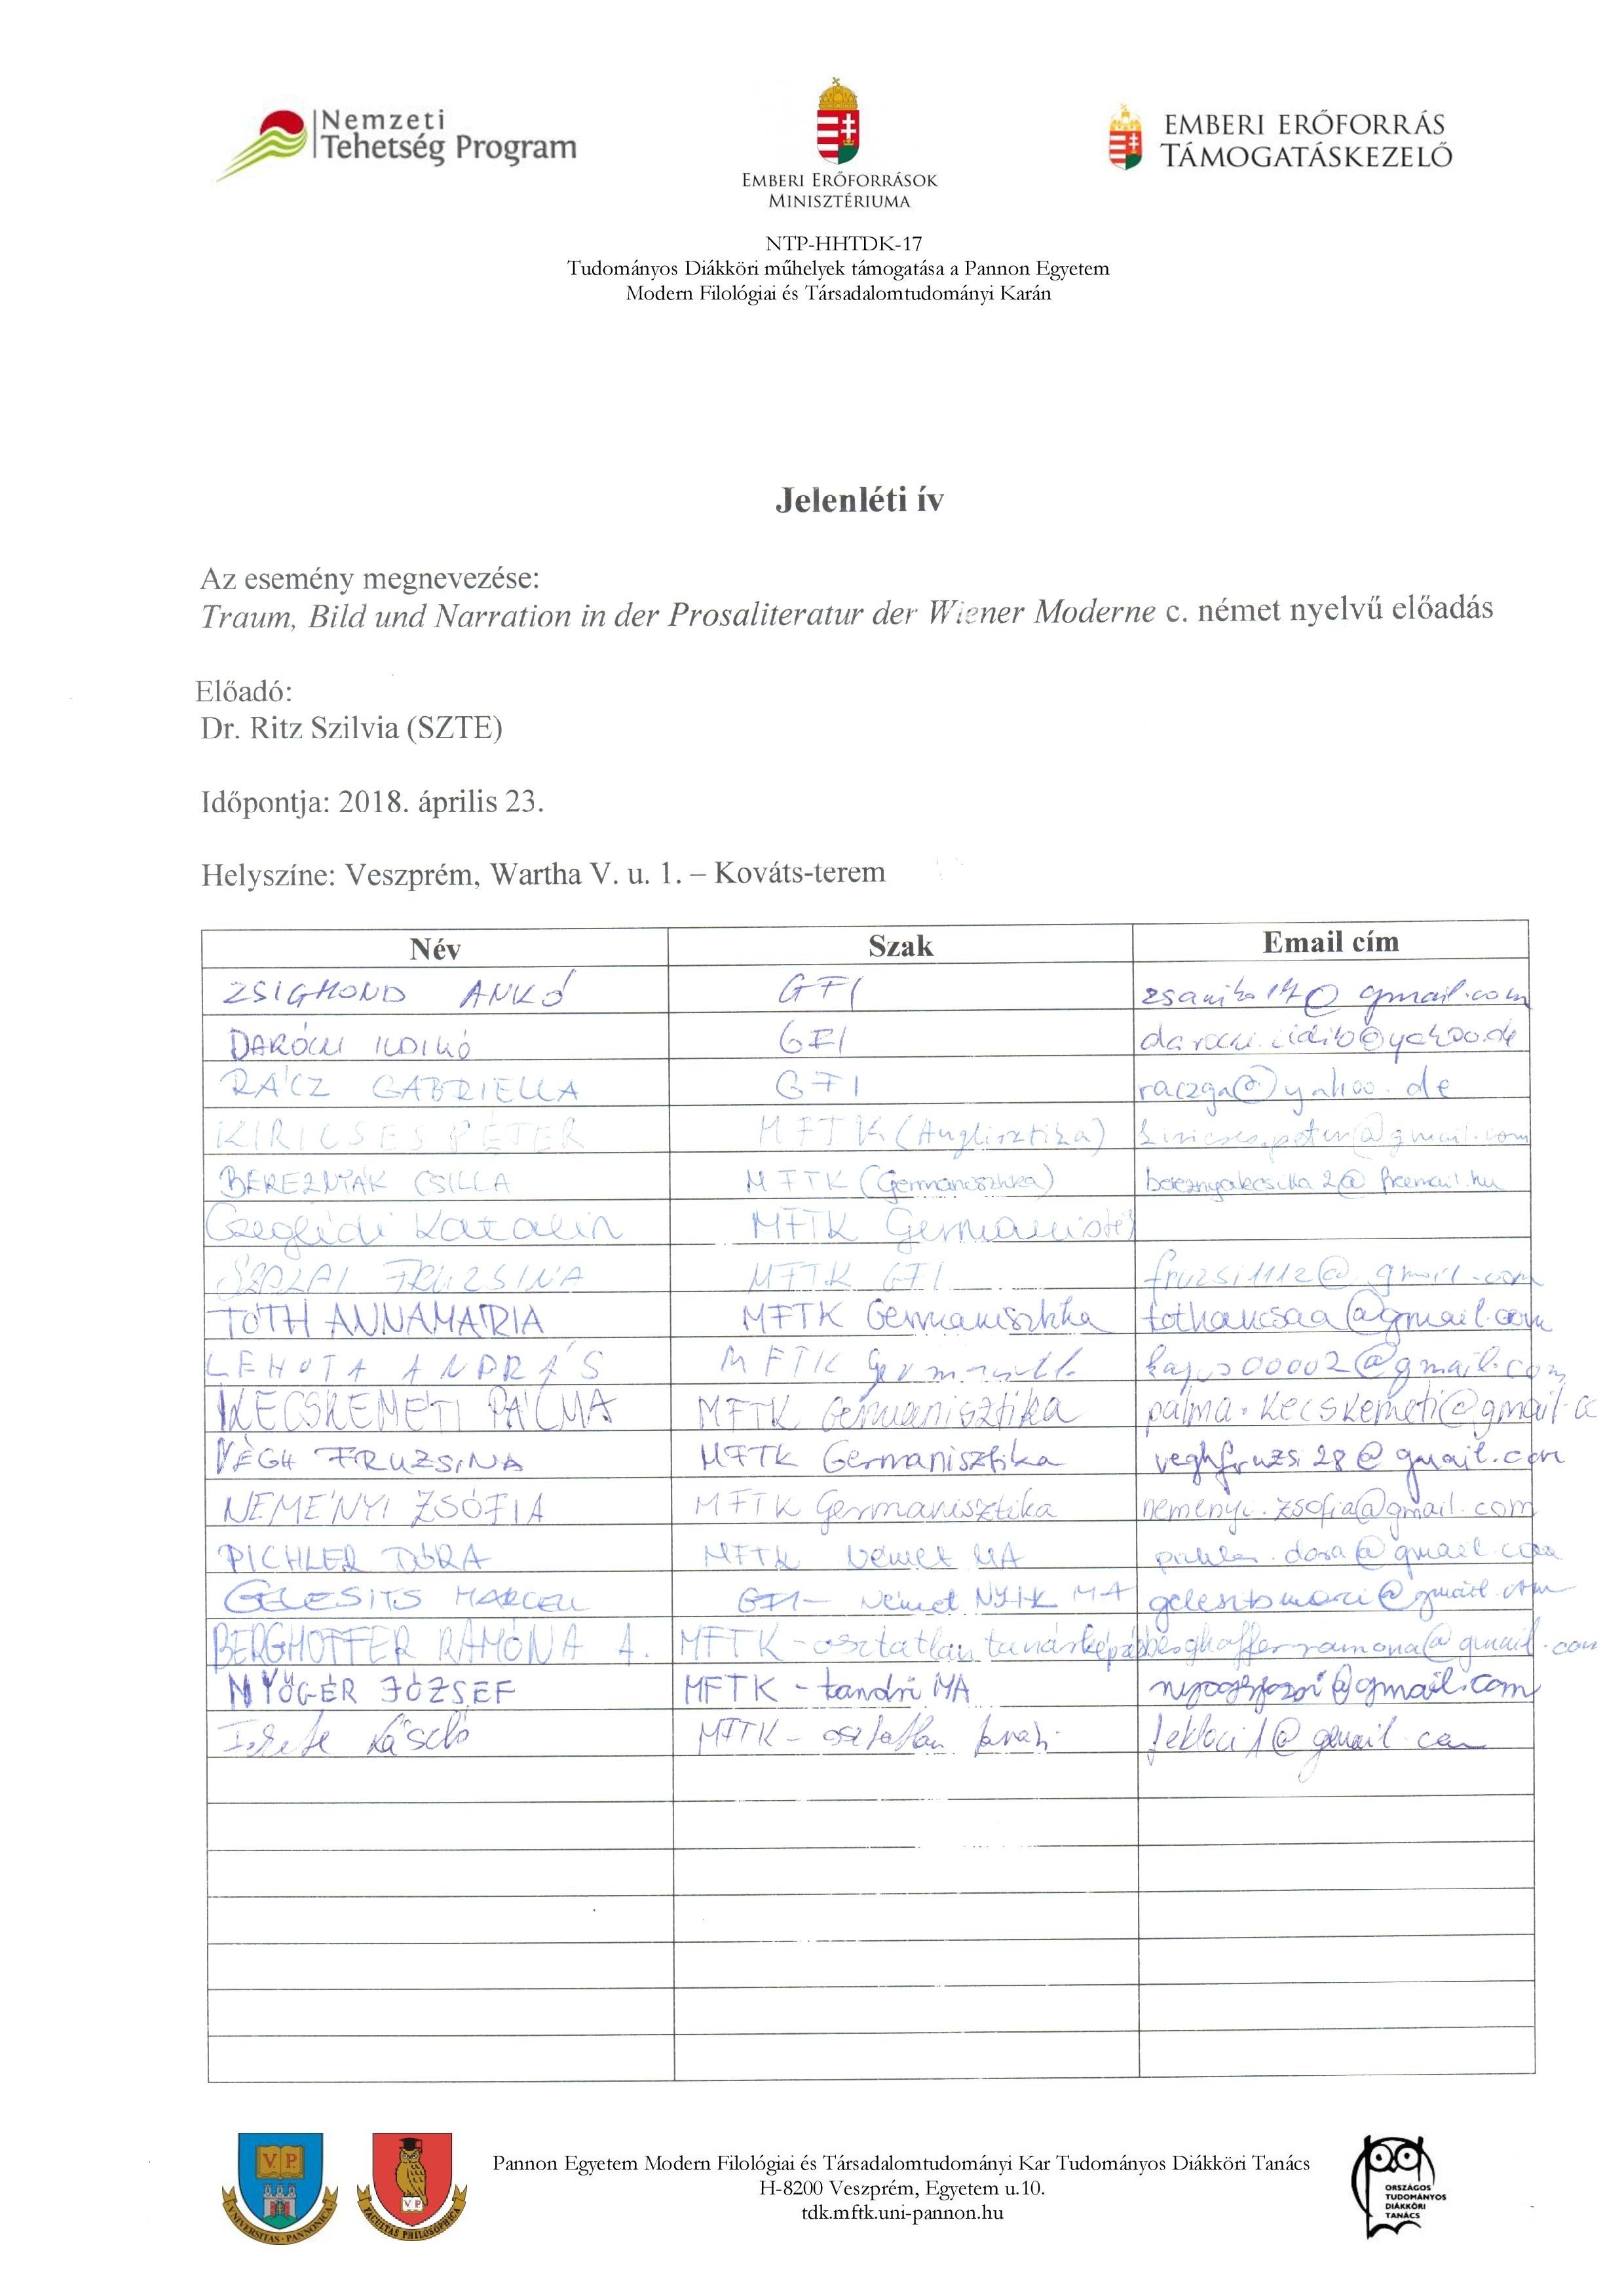 Nemzeti
Tehetség Program
EMBERI ERŐFORRÁSOK
MINISZTÉRIUMA
EMBERI ERŐFORRÁS
TÁMOGATÁSKEZELŐ
NTP-HHTDK-17
Tudományos Diákköri műhelyek támogatása a Pannon Egyetem
Modern Filológiai és Társadalomtudományi Karán
Jelenléti ív
Az esemény megnevezése:
Traum, Bild und Narration in der Prosaliteratur der Wiener Moderne c. német nyelvű előadás
Előadó:
Dr. Ritz Szilvia (SZTE)
Időpontja: 2018. április 23.
Helyszíne: Veszprém, Wartha V. u. 1. – Kováts-terem
Név Szak Email cím
ZSIGMOND ANIKÓ GTI @gmail.com
DARÓCZI ILDIKÓ GTI
RÁCZ GABRIELLA GTI raczga@yahoo.de
KIRICSES PÉTER MFTK (Anglisztika) kiricses.peter@gmail.com
BEREZNYÁK CSILLA MFTK (Germanisztika) bereznyakcsilla2@freemail.hu
Czeglédi Katalin MFTK
SZALAI FRUZSINA MFTK GTI fruzsi1112@gmail.com
TÓTH ANNAMÁRIA MFTK Germanisztika tothancsaa@gmail.com
LEHOTA ANDRÁS MFTK
KECSKEMÉTI PÁLMA MFTK Germanisztika
VÉGH FRUZSINA MFTK Germanisztika veghfruzsi28@gmail.com
NEMÉNYI ZSÓFIA MFTK Germanisztika nemenyi.zsofia@gmail.com
PICHLER DÓRA MFTK Német MA pichler.dora@gmail.com
GELESITS MARCELL GTI – Német NYIK MA
BERGHOFFER RAMÓNA A. MFTK – osztatlan tanárképzés berghofferramona@gmail.com
NYŐGÉR JÓZSEF MFTK – tanári MA
Fekete László MFTK – osztatlan tanári feklaci1@gmail.com
V. P.
UNIVERSITAS · PANNONICA
V P
FACULTAS PHILOSOPHICA
Pannon Egyetem Modern Filológiai és Társadalomtudományi Kar Tudományos Diákköri Tanács
H-8200 Veszprém, Egyetem u.10.
tdk.mftk.uni-pannon.hu
ORSZÁGOS
TUDOMÁNYOS
DIÁKKÖRI
TANÁCS